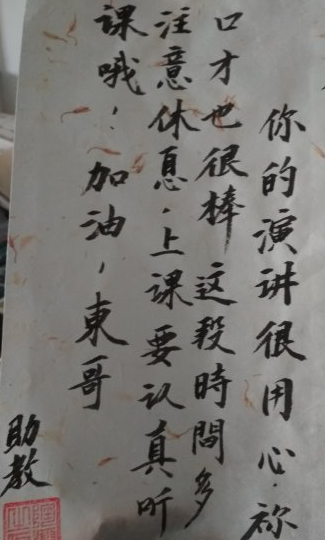 你的演讲很用心.祢
口才也很棒 这段時間多
注意休息.上课要认真听
课哦!加油,東哥
助教